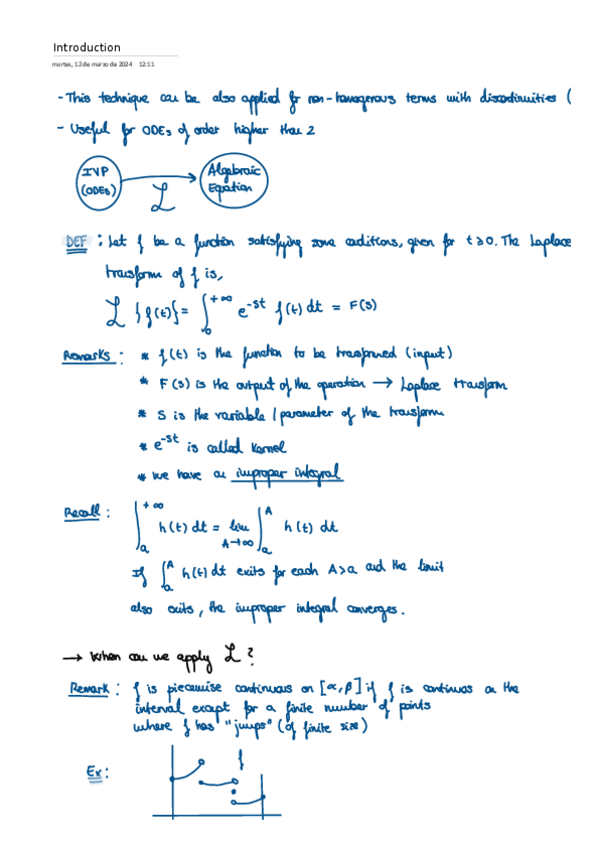 Introduction
martes, 12 de marzo de 2024 12:11
- This technique can be also applied for non-homogenous terms with discontinuities (
- Useful for ODEs of order higher than 2
IVP (ODEs) → Algebraic Equation
ℒ
DEF: Let f be a function satisfying some conditions, given for t≥0. The Laplace
transform of f is,
ℒ {f(t)} = ∫₀^{+∞} e^{-st} f(t) dt = F(s)
Remarks: * f(t) is the function to be transformed (input)
* F(s) is the output of the operation → Laplace transform
* S is the variable / parameter of the transform
* e^{-st} is called Kernel
* We have an improper integral
Recall: ∫ₐ^{+∞} h(t) dt = lim_{A→∞} ∫ₐ^A h(t) dt
If ∫ₐ^A h(t) dt exits for each A>a and the limit
also exits, the improper integral converges.
→ When can we apply ℒ?
Remark: f is piecewise continuous on [α,β] if f is continuos on the
interval except for a finite number of points
where f has "jumps" (of finite size)
Ex: f